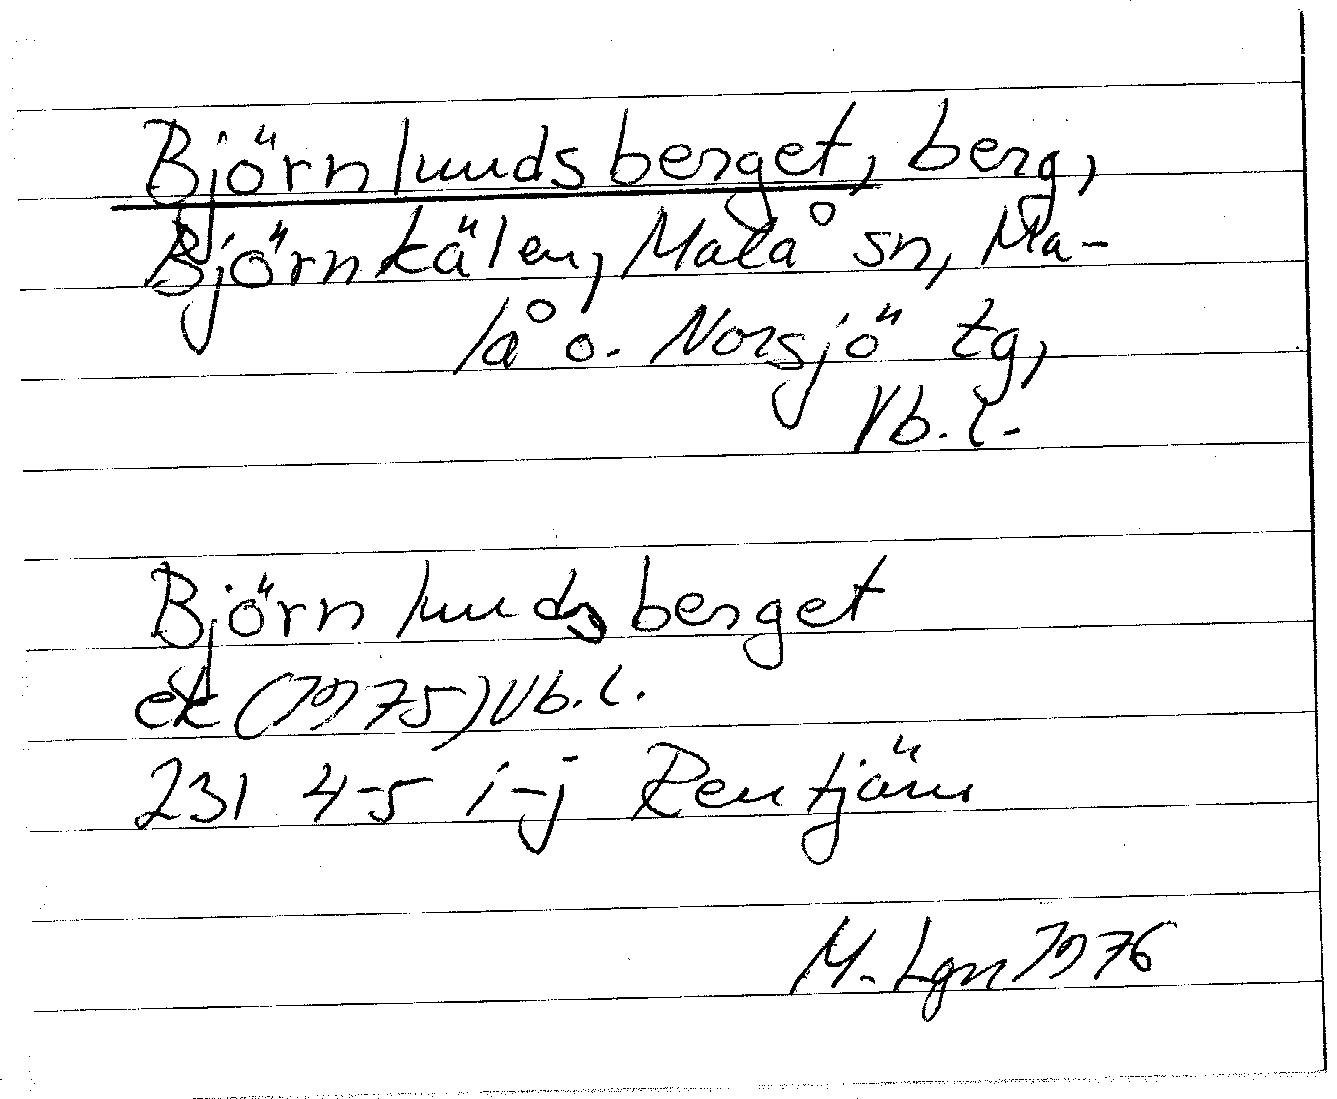 Björnlundsberget, berg,
Björnkälen, Malå sn, Ma-
lå o. Norsjö tg,
Vb.l.
Björnlundsberget
ek (1975) Vb.l.
231 4-5 i-j Rentjärn
M. Lgn 1976